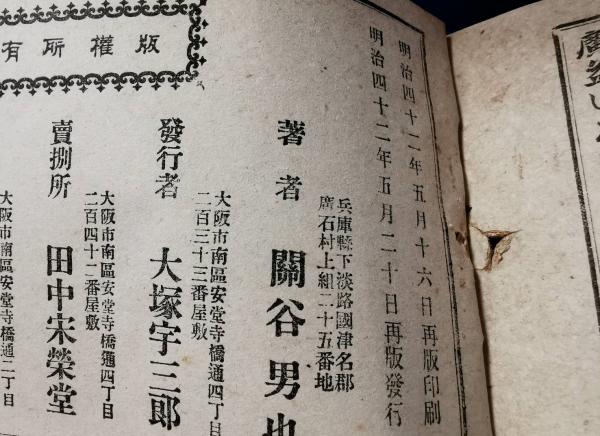 廣益い
明治四十二年五月十六日再版印刷
明治四十二年五月二十日再版發行
兵庫縣下淡路國津名郡
廣石村上組二十五番地
著者 關谷男也
大阪市南區安堂寺橋通四丁目
二百三十三番屋敷
發行者 大塚宇三郎
大阪市南區安堂寺橋通四丁目
二百四十一番屋敷
賣捌所 田中宋榮堂
大阪市南區安堂寺橋通二丁目
版權所有